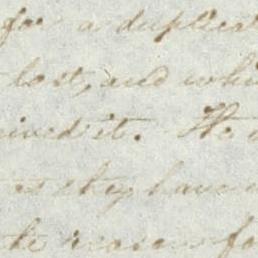 for a duplica
lost, and whi
eived it. He
as they have
the reasons fo